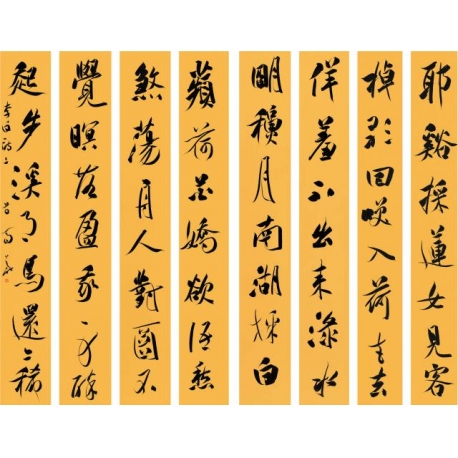 耶谿採蓮女見客
棹歌回笑入荷花去
佯羞不出來淥水
明秋月南湖採白
蘋荷花嬌欲語愁
煞蕩舟人對不
覺暝落盈我衣醉
起步溪月鳥還稀
李白詩二首